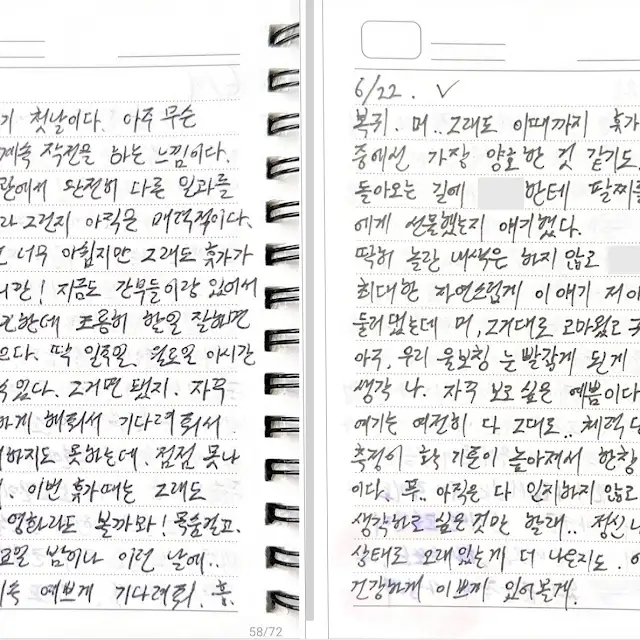 첫날이다. 아주 무슨
계속 작전을 하는 느낌이다.
완전히 다른 일과를
그런지 아직은 매력적이다.
너무 아쉽지만 그래도 휴가가
지금도 간부들이랑 있어서
조용히 할일 잘하면
딱 일요일, 월요일 아시간
있다. 그거면 됐지. 자꾸
하게 해줘서 기다려줘서.
하지도 못하는데. 점점 못나
이번 휴가때는 그래도
영화라도 볼까봐! 목숨걸고.
밤이나 이런 날에..
예쁘게 기다려줘. 흠.
58/72
6/22. ✓
복귀. 머.. 그래도 이때까지 휴가
중에선 가장 양호한 것 같기도.
돌아오는 길에 한테 팔찌를
에게 선물했는지 얘기했다.
딱히 놀란 내색은 하지 않고
최대한 자연스럽게 이 얘기 저 이
둘러댔는데 머, 그거대로 고마웠고
아주, 우리 울보칭 눈 빨갛게 된게
생각 나. 자꾸 보고싶은 예쁨이다
여기는 여전히 다 그대로.. 체력
측정이 확 기준이 높아져서 한창
이다. 푸.. 아직은 다 인지하지 않고
생각하고 싶은것만 할래.. 정신
상태로 오래있는게 더 나은지도.
건강하게 이쁘게 있어볼게.